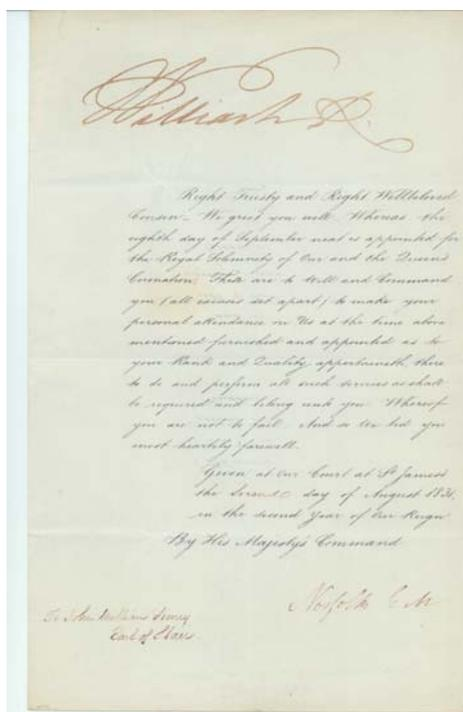 William R.
Right Trusty and Right Wellbeloved
Cousin – We greet you well. Whereas the
eighth day of September next is appointed for
the Royal Solemnity of Our and the Queen's
Coronation, These are to Will and Command
you (all excuses set apart) to make your
personal attendance on Us at the time above
mentioned furnished and appointed as to
your Rank and Quality appertaineth, there
to do and perform all such services as shall
be required and belong unto you. Whereof
you are not to fail. And so We bid you
most heartily farewell.
Given at Our Court at St James's
the day of August 1831.
in the second Year of Our Reign
By His Majesty's Command
Norfolk E M
To John
Earl of Clare